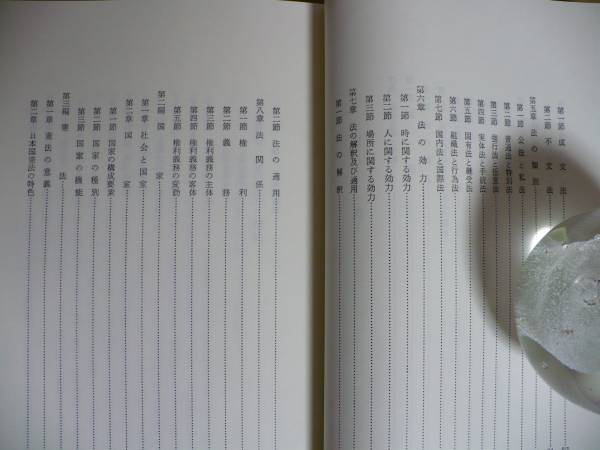 第一節 成文法
第二節 不文法
第五章 法の類別
第一節 公法と私法
第二節 普通法と特別法
第三節 強行法と任意法
第四節 実体法と手続法
第五節 固有法と継受法
第六節 組織法と行為法
第七節 国内法と国際法
第六章 法の効力
第一節 時に関する効力
第二節 人に関する効力
第三節 場所に関する効力
第七章 法の解釈及び適用
第一節 法の解釈
第二節 法の適用
第八章 法関係
第一節 権利
第二節 義務
第三節 権利義務の主体
第四節 権利義務の客体
第五節 権利義務の変動
第二編 国家
第一章 社会と国家
第二章 国家
第一節 国家の構成要素
第二節 国家の種別
第三節 国家の機能
第三編 憲法
第一章 憲法の意義
第二章 日本国憲法の特色